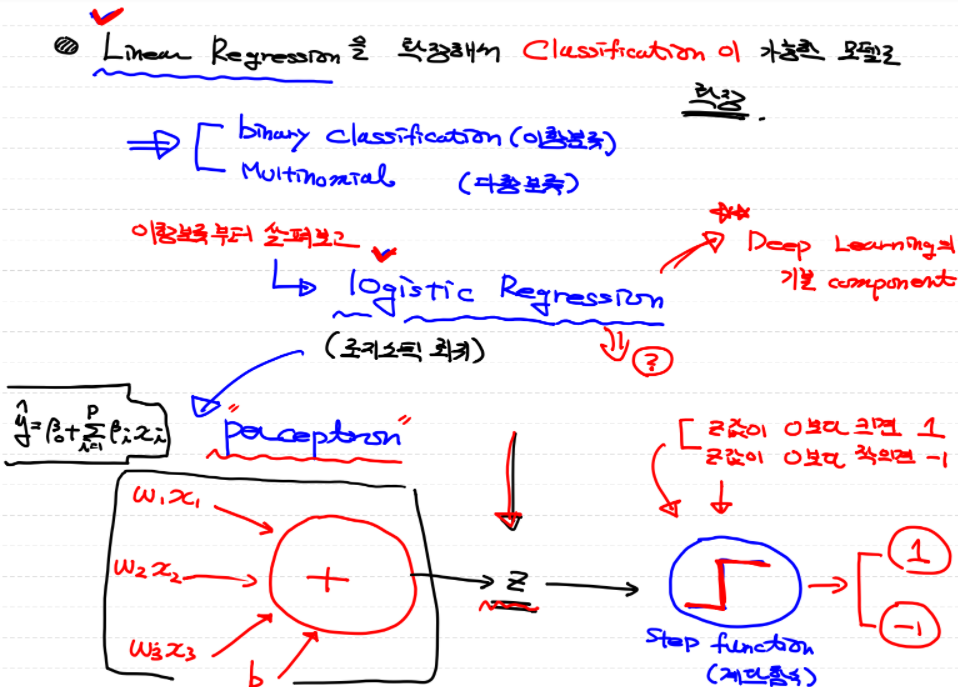 Linear Regression을 확장해서 Classification이 가능한 모델로
확장.
⇒ binary classification (이항분류)
Multinomial (다항분류)
이항분류부터 살펴보고
logistic Regression
Deep Learning의
기본 component
(로지스틱 회귀)
?
ŷ = β₀ + Σ βᵢxᵢ
p
i=1
"perceptron"
z값이 0보다 크면 1
z값이 0보다 작으면 -1
w₁x₁
w₂x₂
w₃x₃
b
+
z
1
-1
Step function
(계단함수)